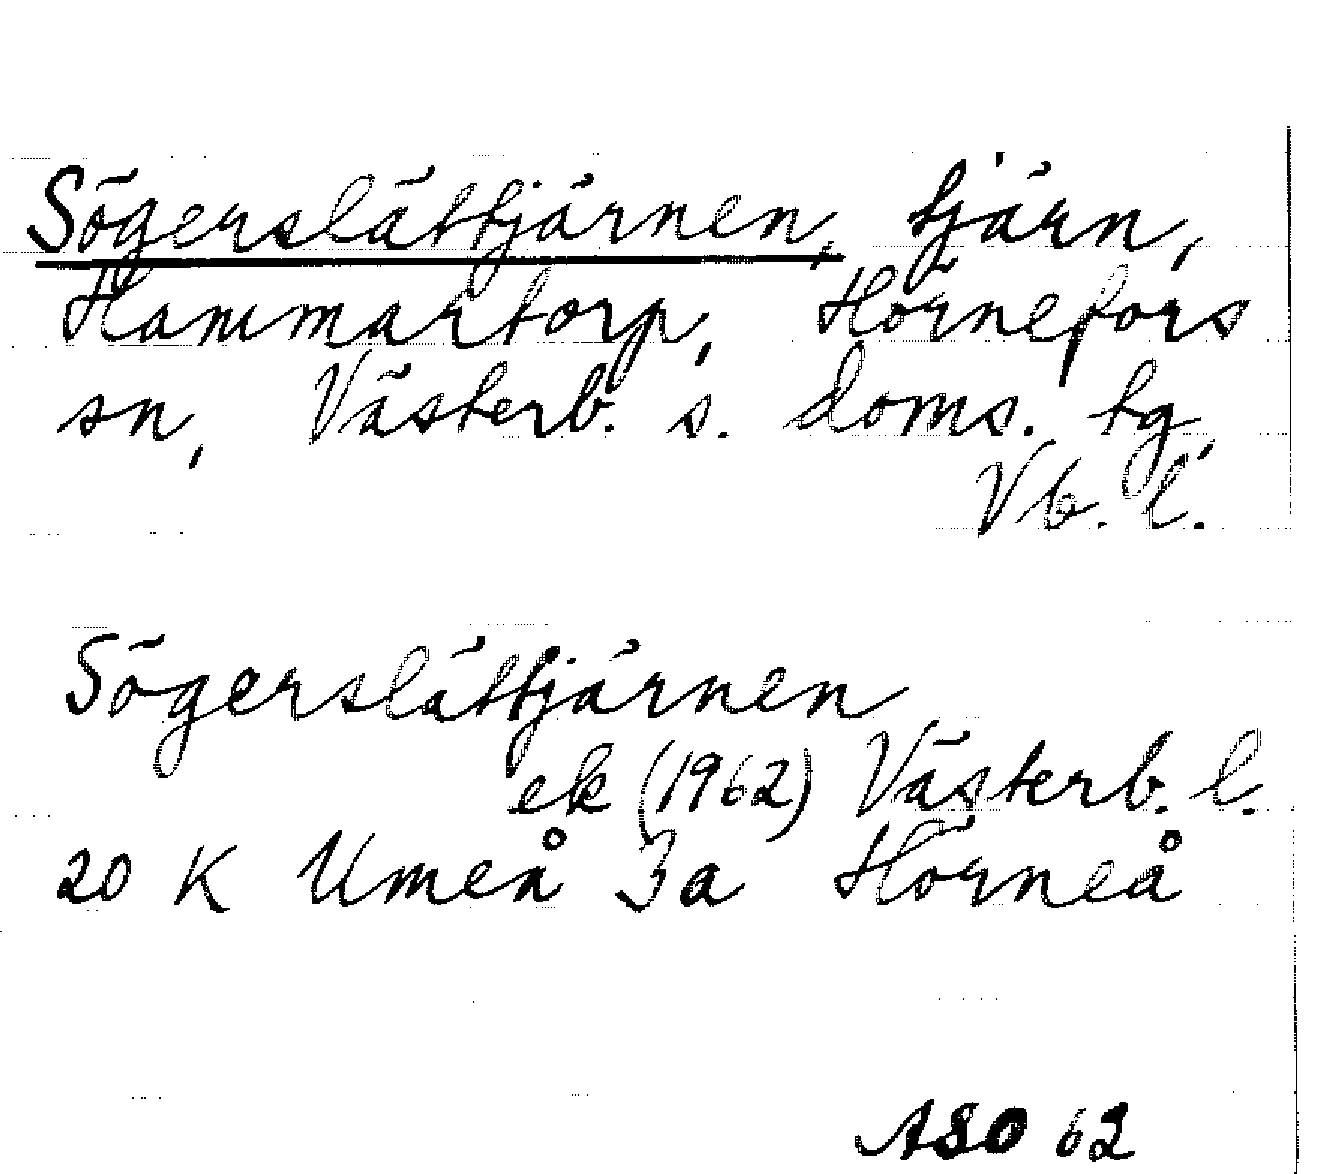 Sögerslättjärnen, tjärn,
Hammartorp, Hörnefors
sn, Västerb. s. doms. tg,
Vb. l.
Sögerslättjärnen
ek (1962) Västerb. l.
20 K Umeå 3a Hörneå
ASO 62